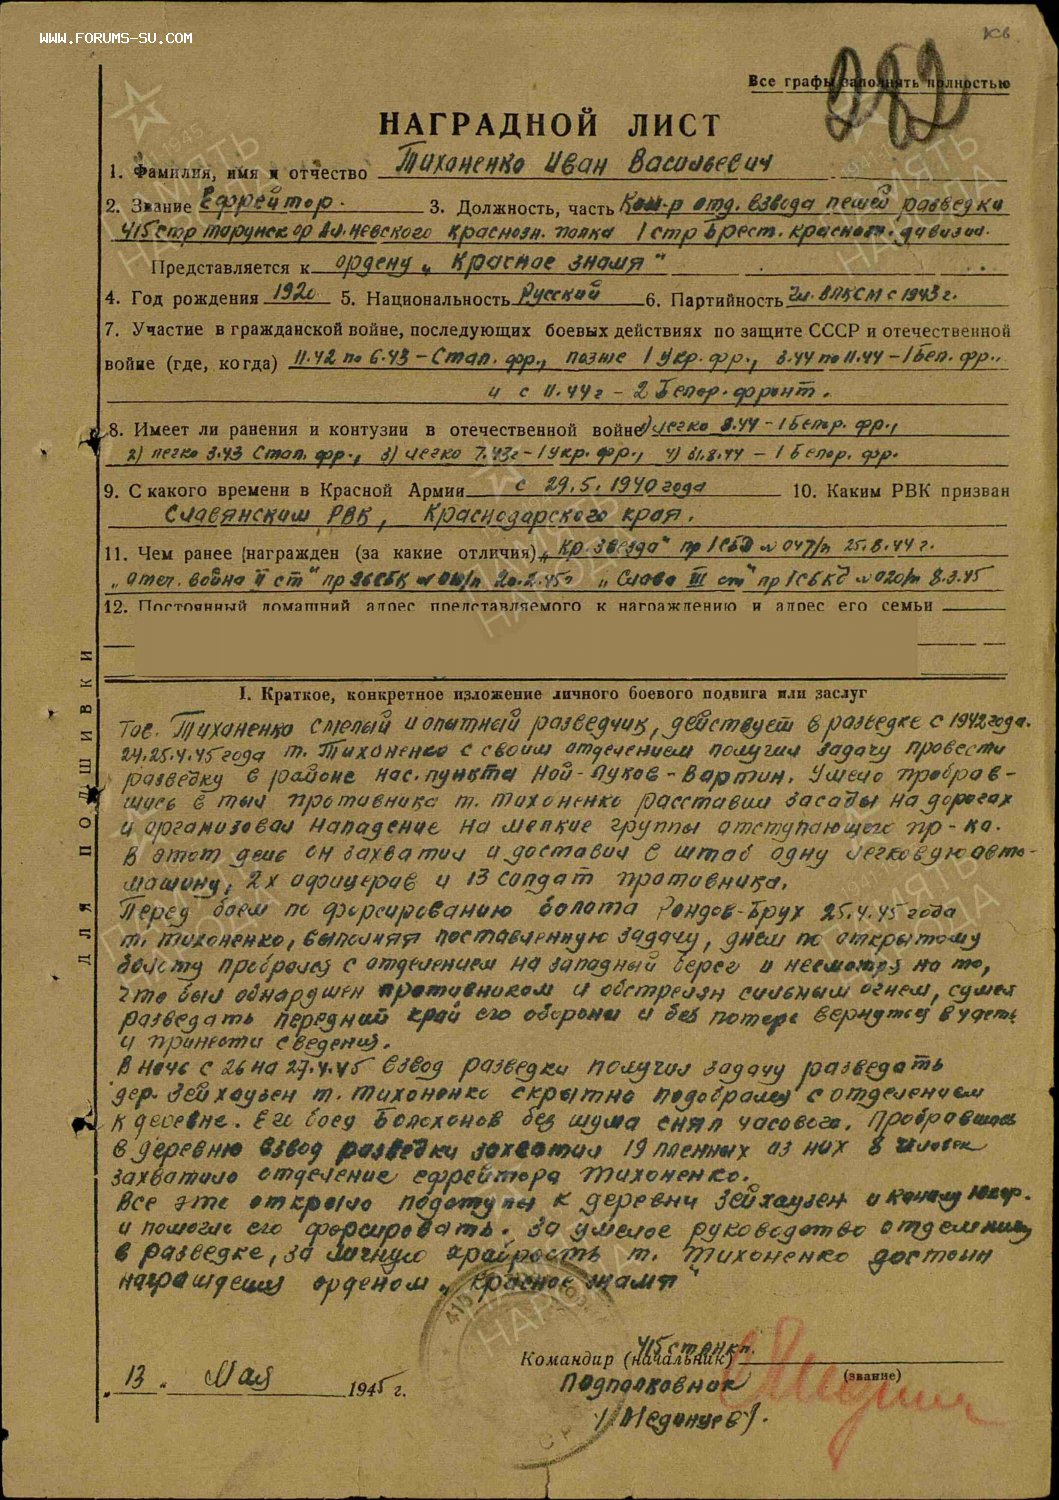 WWW.FORUMS-SU.COM
Все графы заполнять полностью
НАГРАДНОЙ ЛИСТ
1. Фамилия, имя и отчество Тихоненко Иван Васильевич
2. Звание Ефрейтор. 3. Должность, часть Ком-р отд. взвода пешей разведки
415 стр Тарунск ор Ал. Невского краснозн. полка 1 стр Брест. красноз. дивизии.
Представляется к ордену „Красное знамя"
4. Год рождения 1920 5. Национальность Русский 6. Партийность Чл. ВЛКСМ с 1943 г.
7. Участие в гражданской войне, последующих боевых действиях по защите СССР и отечественной
войне (где, когда) 11.42 по 6.43 – Стал. фр., позже 1 Укр. фр., 3.44 по 11.44 – 1 Бел. фр.,
и с 11.44 г – 2 Белор. фронт.
8. Имеет ли ранения и контузии в отечественной войне 1) легко 3.44 – 1 Белор. фр.,
2) легко 3.43 Стал. фр., 3) легко 7.43г – 1 Укр. фр., 4) 31.8.44 – 1 Белор. фр.
9. С какого времени в Красной Армии с 29.5.1940 года 10. Каким РВК призван
Славянским РВК, Краснодарского края.
11. Чем ранее (награжден (за какие отличия) „Кр. звезда" пр 1СБД № 047/н 25.8.44 г.
„Отеч. война II ст" пр 36СБК № 20.2.45г „Слава III ст" пр 1СБКД № 020/н 8.3.45
12. Постоянный домашний адрес представляемого к награждению и адрес его семьи
ДЛЯ ПОДШИВКИ
I. Краткое, конкретное изложение личного боевого подвига или заслуг
Тов. Тихоненко смелый и опытный разведчик, действует в разведке с 1942 года.
24.25.4.45 года т. Тихоненко с своим отделением получил задачу провести
разведку в районе нас. пункта Ной-Луков-Вартин. Умело пробрав-
шись в тыл противника т. Тихоненко расставил засады на дорогах
и организовал нападение на мелкие группы отступающего пр-ка.
В этот день он захватил и доставил в штаб одну легковую авто-
машину, 2х офицеров и 13 солдат противника.
Перед боем по форсированию болота Рондов-Брух 25.4.45 года
т. Тихоненко, выполняя поставленную задачу, днем по открытому
болоту пробрался с отделением на западный берег и несмотря на то,
что был обнаружен противником и обстрелян сильным огнем, сумел
разведать передний край его обороны и без потерь вернуться в часть
и принести сведения.
В ночь с 26 на 27.4.45 взвод разведки получил задачу разведать
дер. Зейхаузен т. Тихоненко скрытно подобрался с отделением
к деревне. Его боец Болохонов без шума снял часового. Пробравшись
в деревню взвод разведки захватил 19 пленных из них 8 человек
захватило отделение ефрейтора Тихоненко.
Все это открыло подступы к деревни Зейхаузен и каналу
и помогло его форсировать. За умелое руководство отделением
в разведке, за личную храбрость т. Тихоненко достоин
награждения орденом „Красное знамя"
415 стр кп.
Командир (начальник)
(звание)
Подполковник
/Мединцев/.
„13" Мая 1945 г.
ПАМЯТЬ НАРОДА